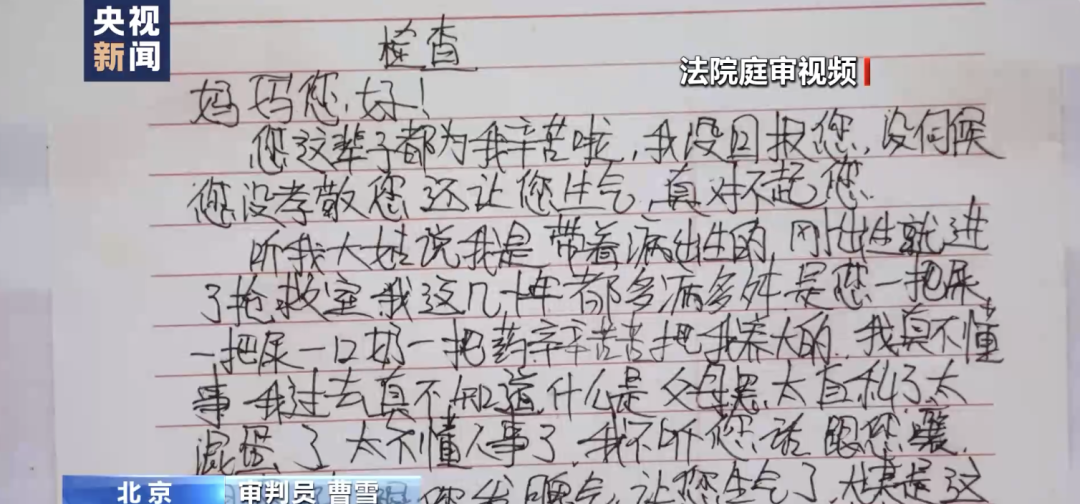 央视
新闻
法院庭审视频
检查
妈妈您好!
您这辈子都为我辛苦啦,我没回报您,没伺候
您没孝敬您还让您生气,真对不起您
听我大姑说我是带着病出生的 刚出生就进
了抢救室.我这几十年都多病多灾 是您一把屎
一把尿一口奶一把药辛辛苦苦把我养大的.我真不懂
事 我过去真不知道什么是父母恩,太自私了,太
混蛋了 太不懂人事了.我不听您话 跟您嚷.
您我 气,让您生气了 是这
北京
审判员 曹雪